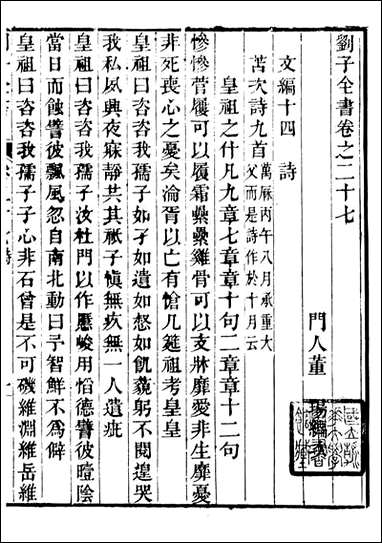 劉子全書卷之二十七
門人董瑒編
文編十四 詩
苫次詩九首
萬厤丙午八月承重大
父而是詩作於十月云
皇祖之什凡九章七章章十句二章章十二句
慘慘菅屨可以履霜纍纍雞骨可以支牀靡愛非生靡憂
非死喪心之憂矣淪胥以亡有愴几筵祖考皇皇
皇祖曰咨咨我孺子如孑如遺如惄如飢藐躬不閱遑哭
我私夙興夜寐靜共其祇子愼無疚無一人遺疵
皇祖曰咨咨我孺子汝杜門以作慝峻用慆德譬彼曀陰
當日而蝕譬彼飄風忽自南北動曰予智鮮不爲僻
皇祖曰咨咨我孺子子心非石曾是不可磯維淵維岳維